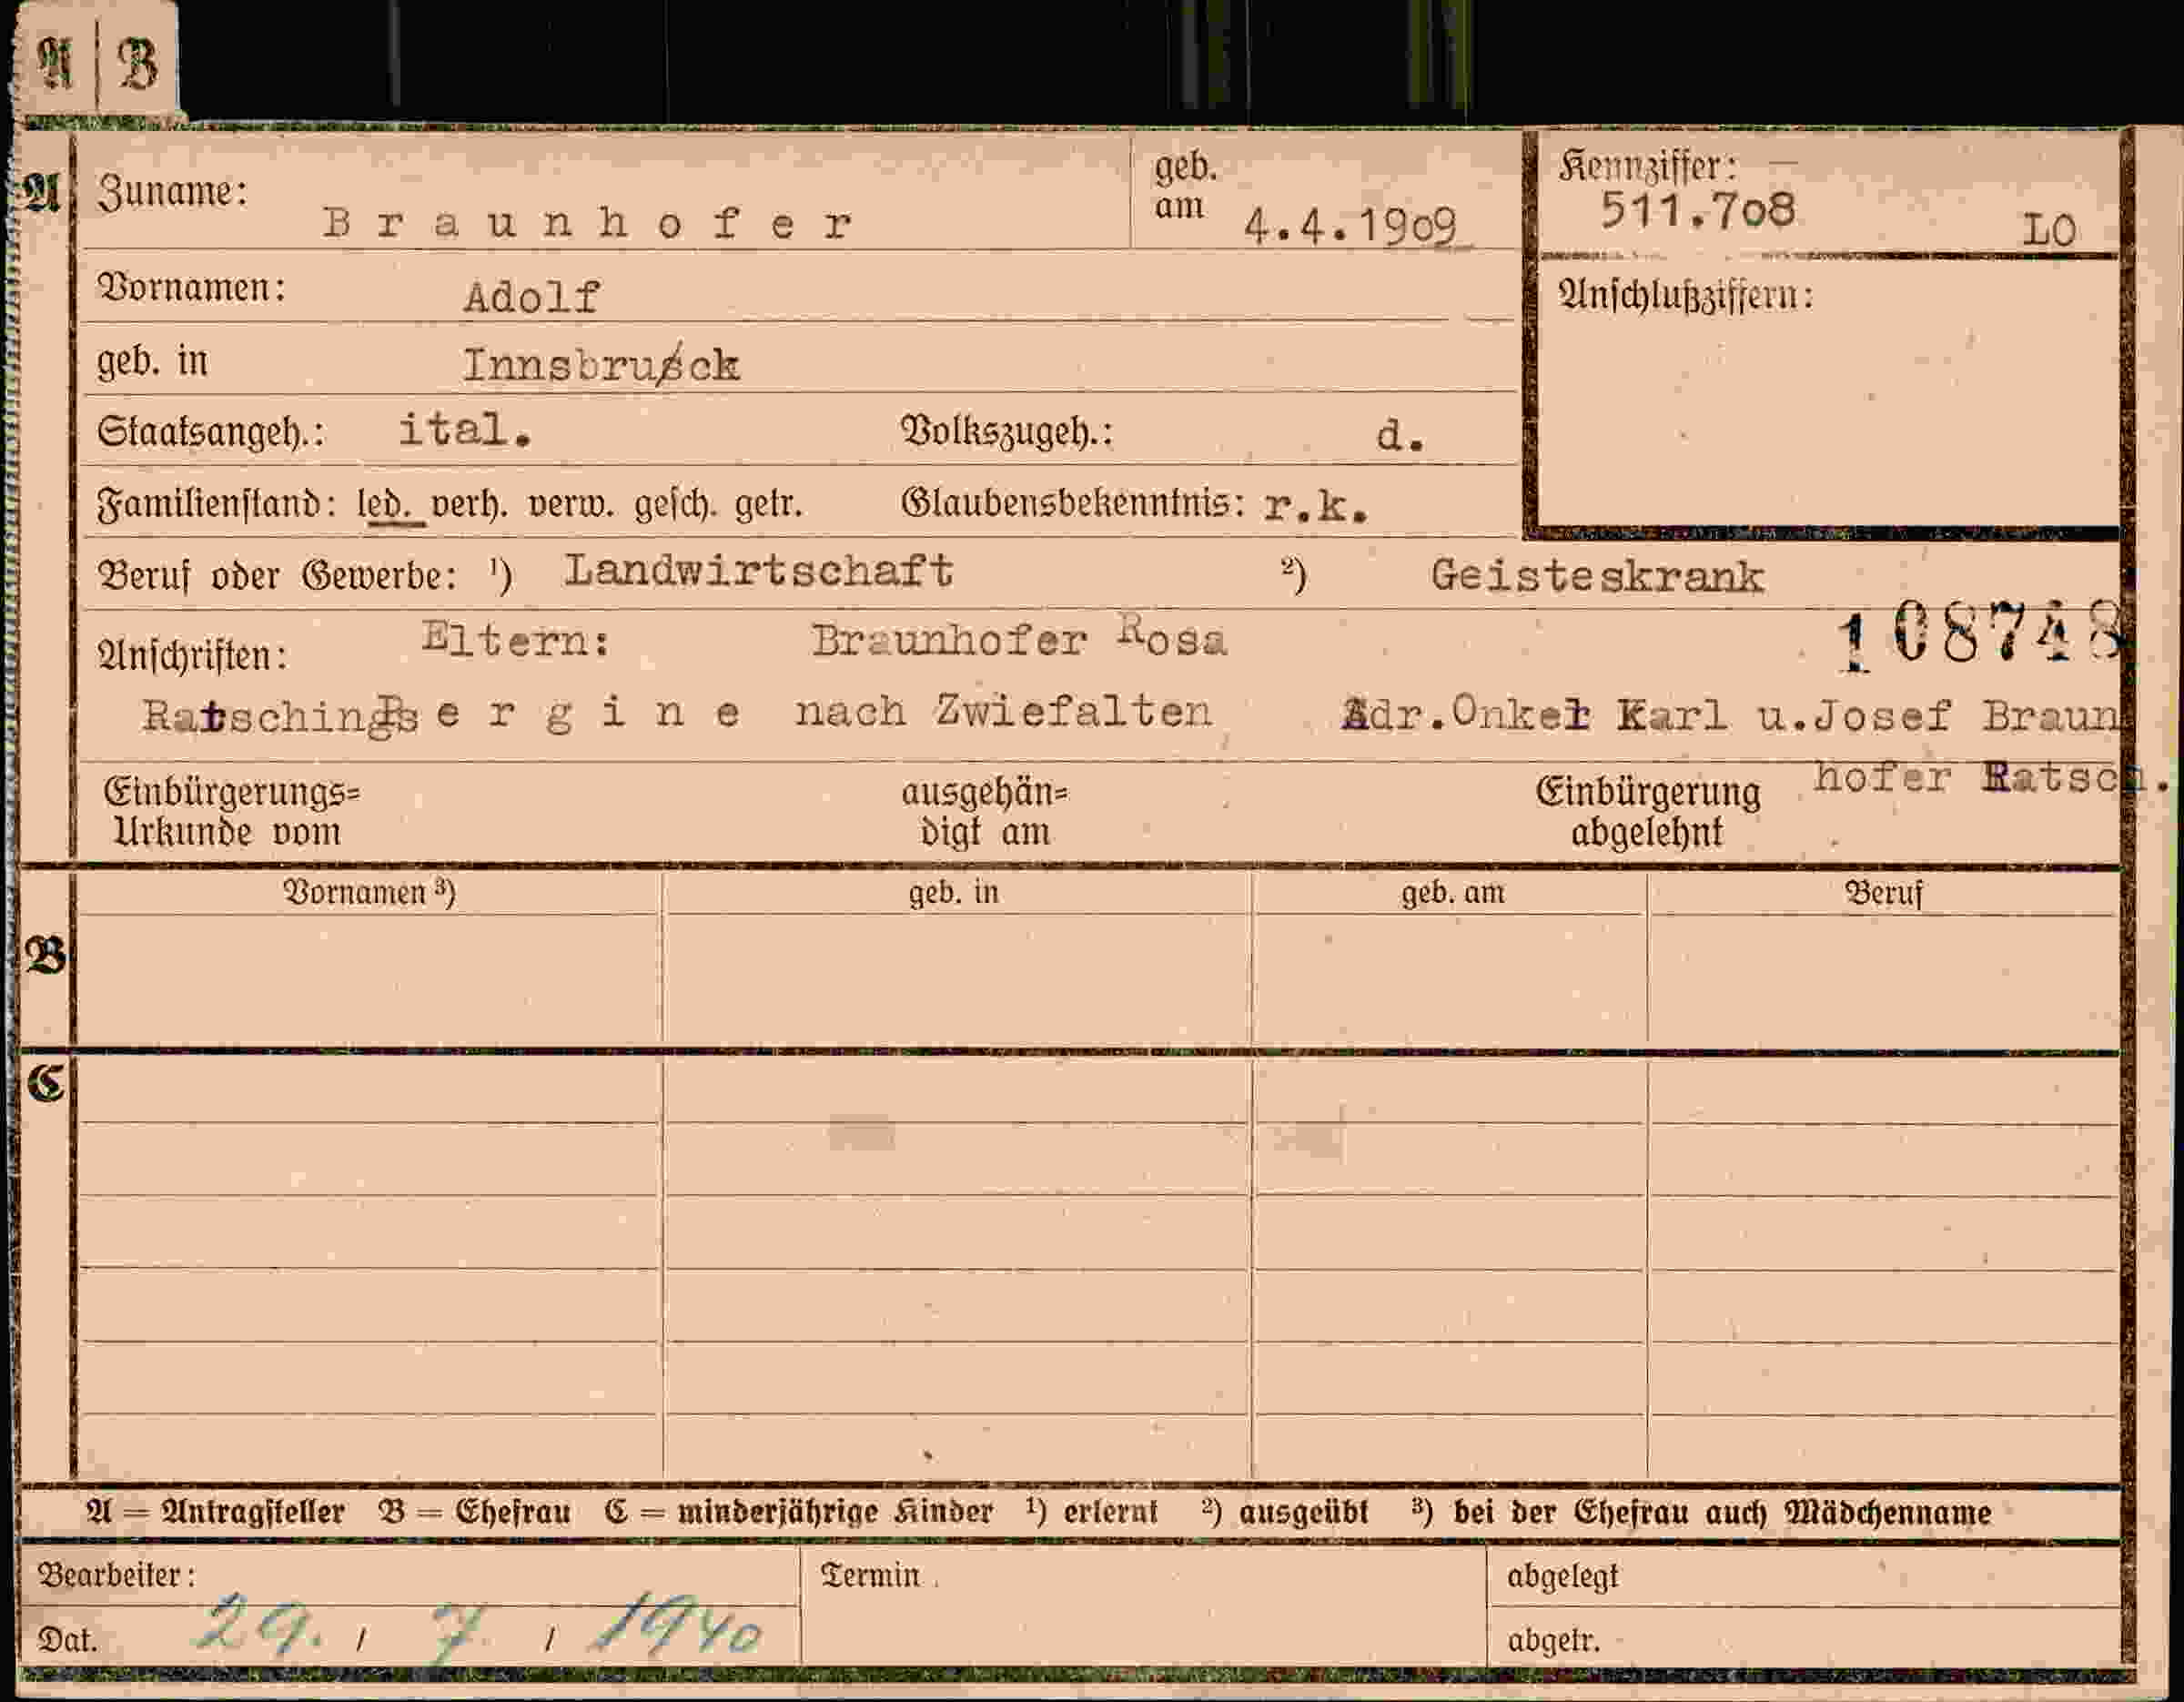 A | B
A Zuname: Braunhofer geb. am 4.4.1909 Kennziffer: 511.708 LO
Vornamen: Adolf Anschlußziffern:
geb. in Innsbruck
Staatsangeh.: ital. Volkszugeh.: d.
Familienstand: led. verh. verw. gesch. getr. Glaubensbekenntnis: r.k.
Beruf oder Gewerbe: ¹) Landwirtschaft ²) Geisteskrank
Anschriften: Eltern: Braunhofer Rosa 108748
Ratschings Pergine nach Zwiefalten Adr.Onkel Karl u.Josef Braun
hofer Ratsch.
Einbürgerungs= ausgehän= Einbürgerung
Urkunde vom digt am abgelehnt
Vornamen ³) geb. in geb. am Beruf
B
C
A = Antragsteller B = Ehefrau C = minderjährige Kinder ¹) erlernt ²) ausgeübt ³) bei der Ehefrau auch Mädchenname
Bearbeiter: Termin abgelegt
Dat. 29. / 7 / 1940 abgetr.